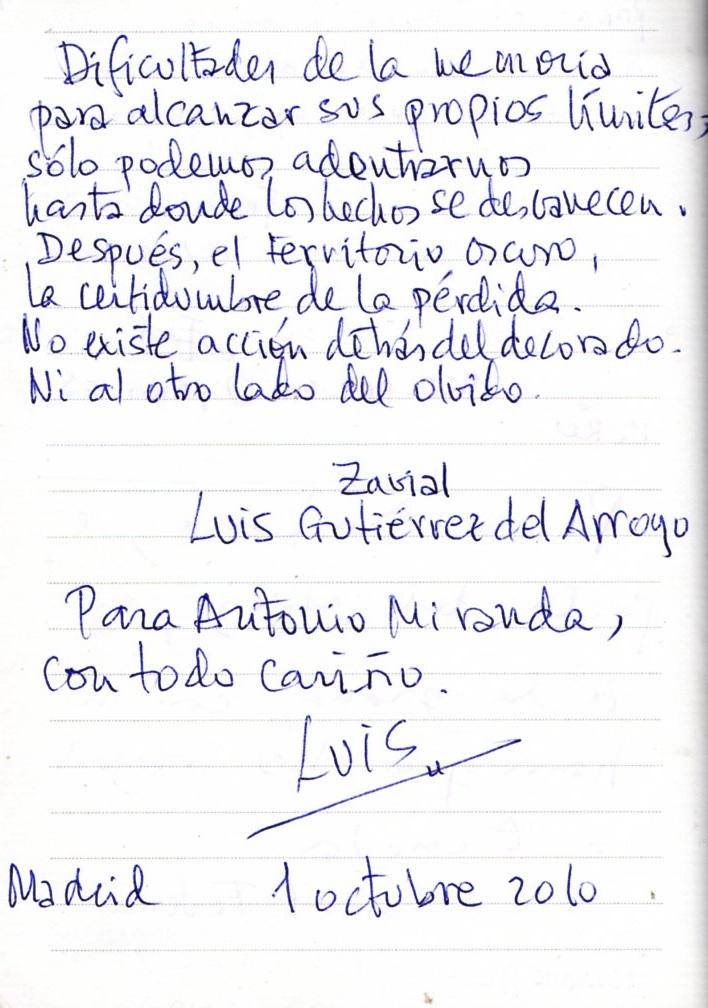 Dificultades de la memoria
para alcanzar sus propios límites,
sólo podemos adentrarnos
hasta donde los hechos se desvanecen.
Después, el territorio oscuro,
la certidumbre de la pérdida.
No existe acción detrás del decorado.
Ni al otro lado del olvido.
Zavial
Luis Gutiérrez del Arroyo
Para Antonio Miranda,
con todo cariño.
Luis
Madrid 1 octubre 2010